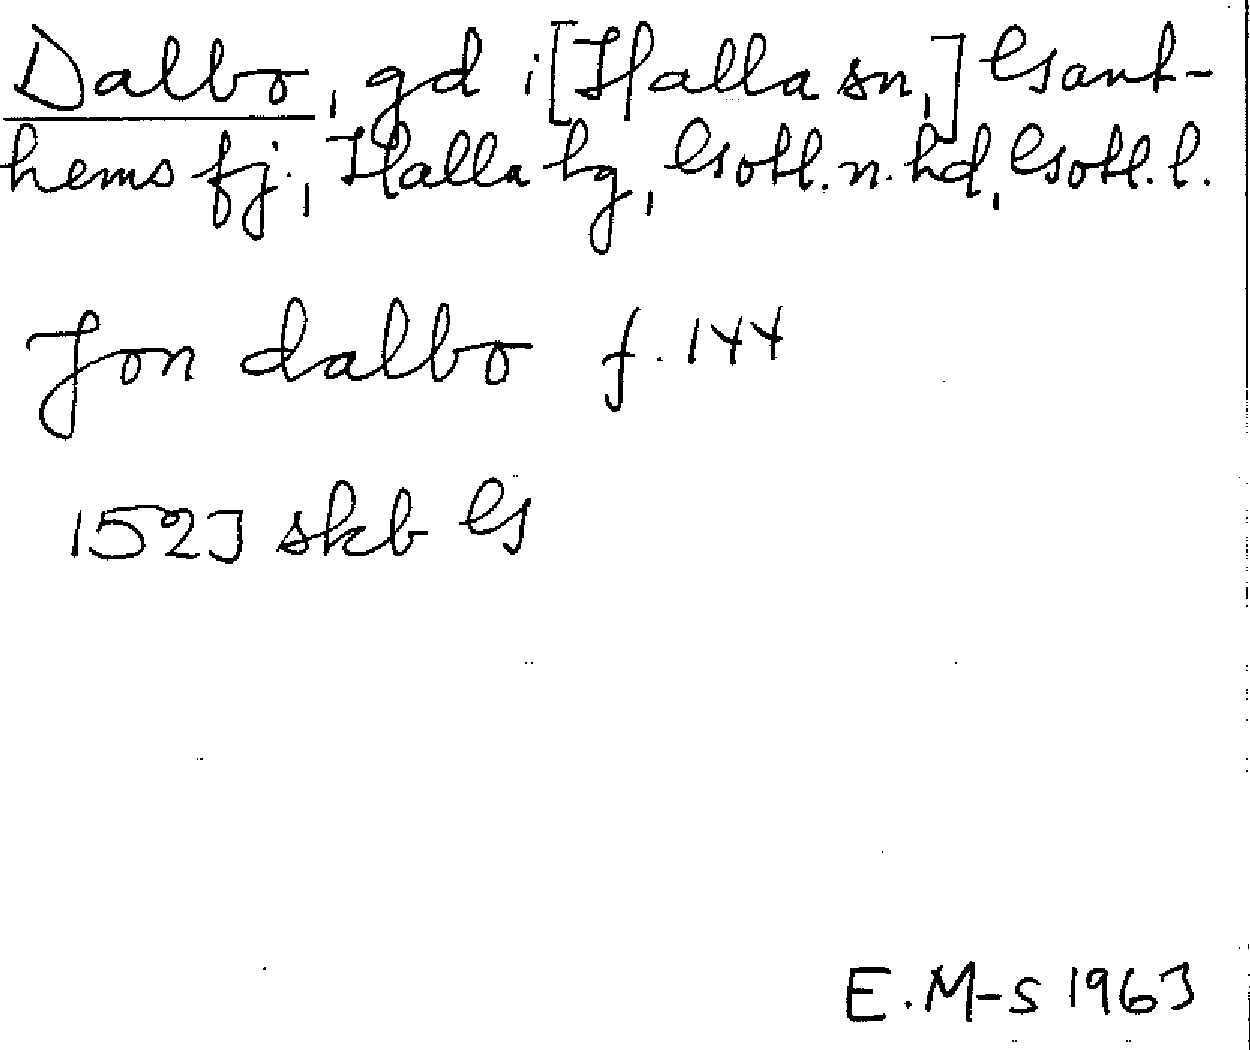 Dalbo, gd i [Halla sn,] Gant-
hems fj., Halla tg, Gotl. n. hd, Gotl. l.
Jon dalbo f. 144
1523 skb G
E. M-s 1963